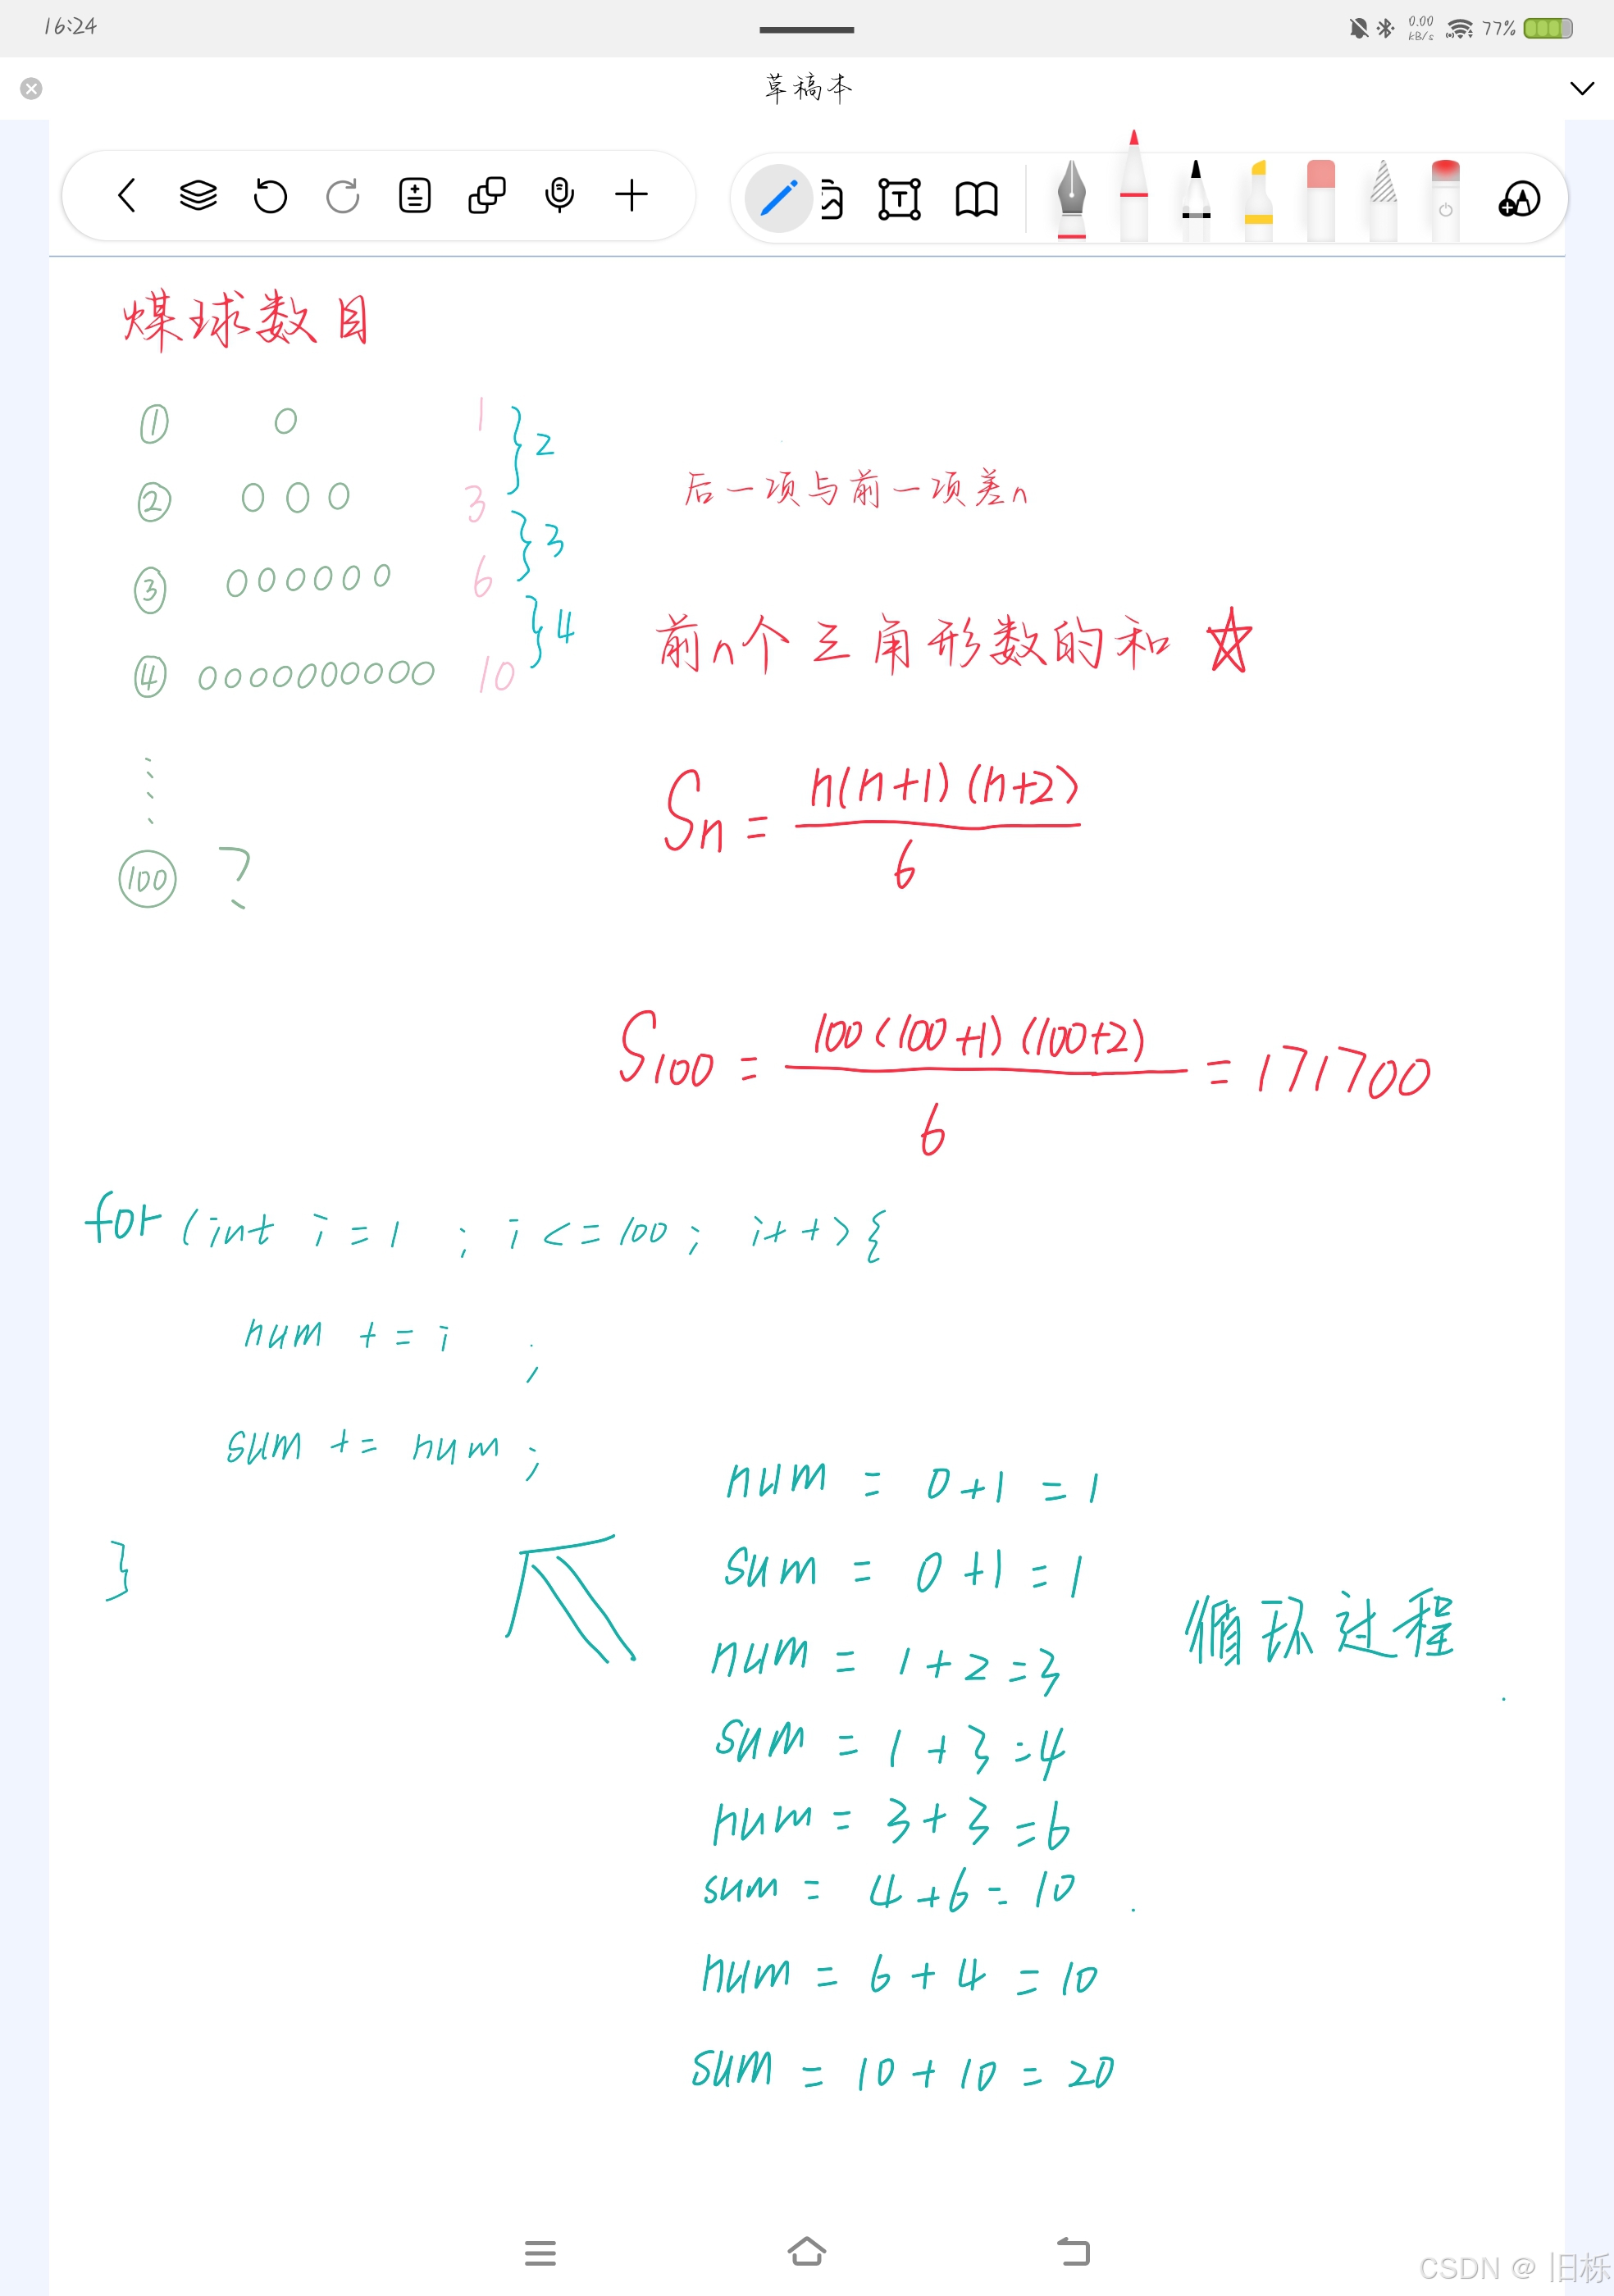 16:24
0.00
kB/s
77%
草稿本
T
煤球数目
① 0 1
2
② 0 0 0 3
后一项与前一项差n
3
③ 0 0 0 0 0 0 6
4
前n个三角形数的和 ☆
④ 0 0 0 0 0 0 0 0 0 0 10
Sn = n(n+1)(n+2) / 6
100 ?
S100 = 100(100+1)(100+2) / 6 = 171700
for (int i = 1 ; i <= 100 ; i++){
num += i ;
sum += num ;
}
num = 0+1 = 1
sum = 0+1 = 1
循环过程
num = 1+2 = 3
sum = 1+3 = 4
num = 3+3 = 6
sum = 4+6 = 10
num = 6+4 = 10
sum = 10+10 = 20
CSDN @旧栎